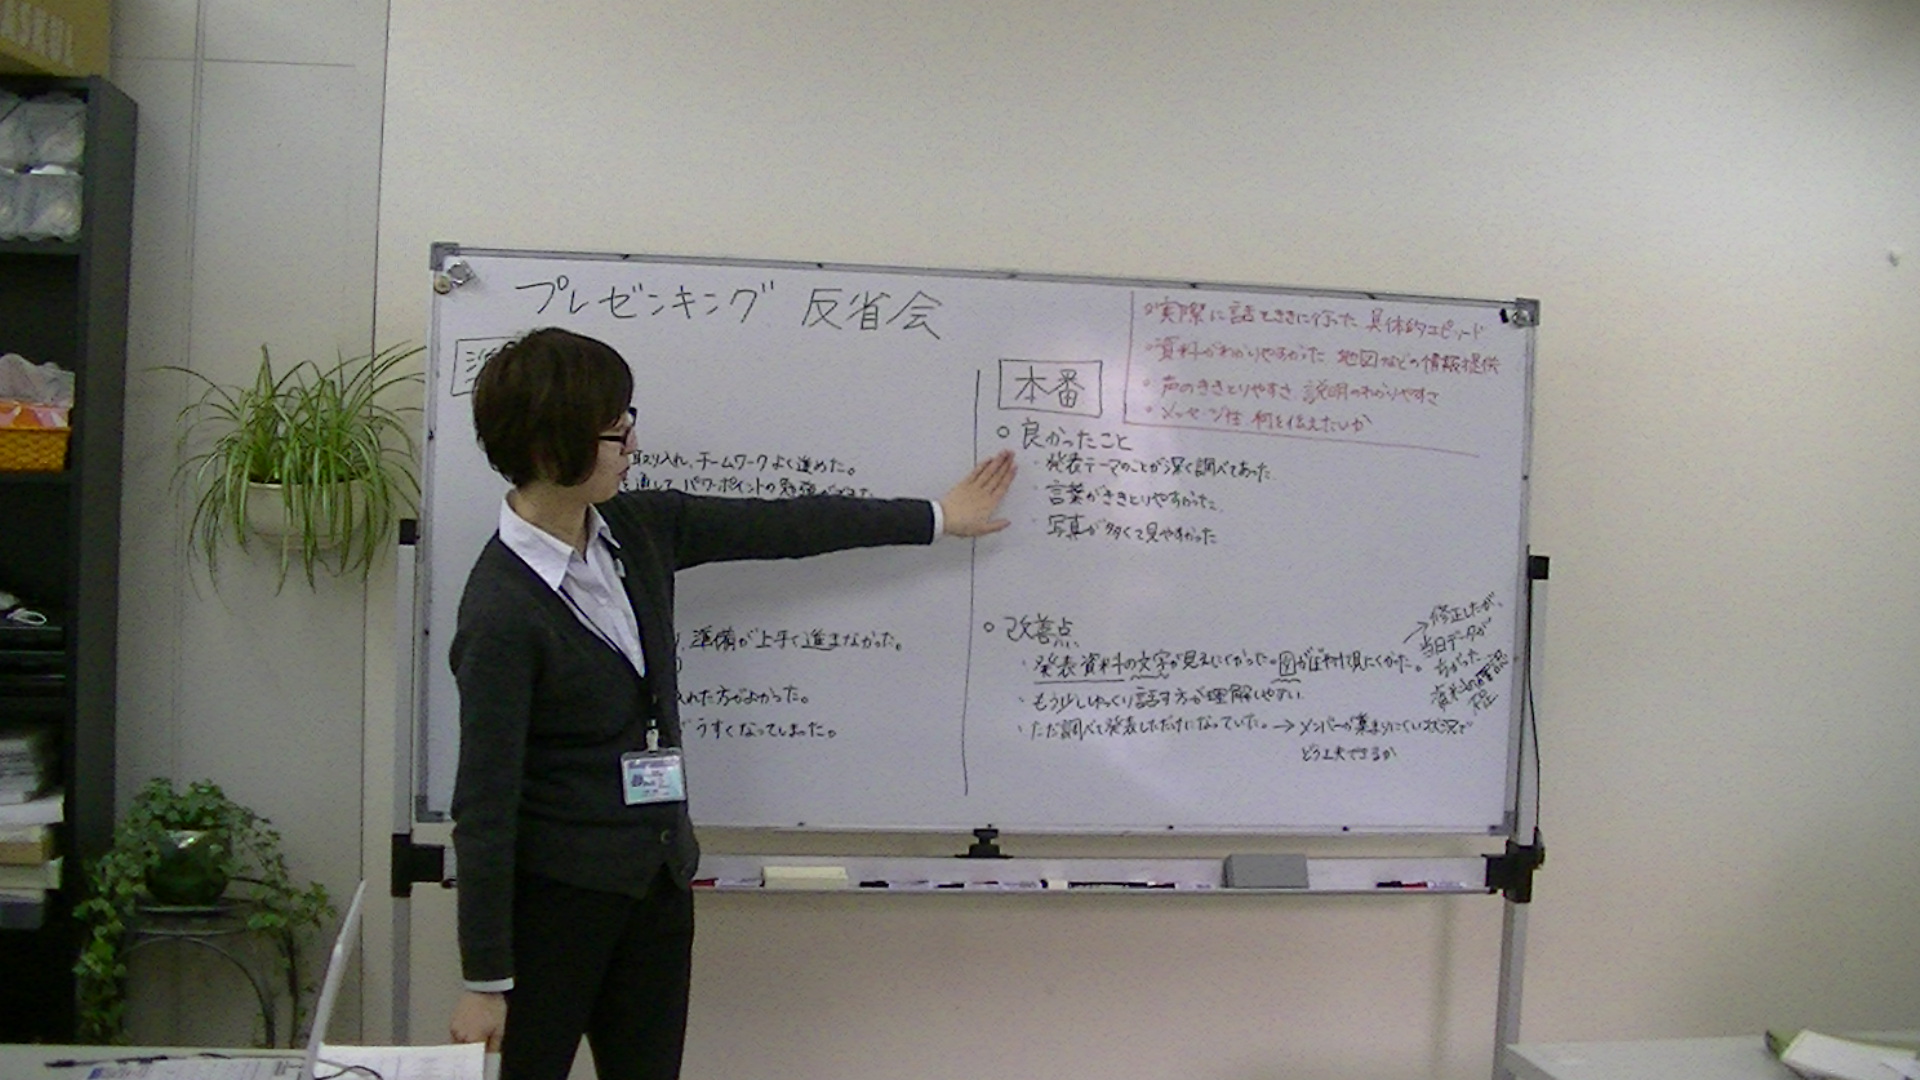 プレゼンキング 反省会
準
取り入れ、チームワークよく進めた。
を通して パワーポイントの勉強ができた
準備が上手く進まなかった。
れた方がよかった。
うすくなってしまった。
本番
○ 良かったこと
・発表テーマのことが深く調べてあった。
・言葉がききとりやすかった。
・写真が多くて見やすかった
○ 改善点
・発表資料の文字が見えにくかった。図がぼやけ見にくかった。
・もう少しゆっくり話す方が理解しやすい
・ただ調べて発表しただけになっていた。→ メンバーが集まりにくい状況で
どう工夫できるか
→修正したが、
当日データが
ちがった
資料の確認
○実際に話をききに行った 具体的エピソード
・資料がわかりやすかった 地図などの情報提供
・声のききとりやすさ 説明のわかりやすさ
・メッセージ性 何を伝えたいか